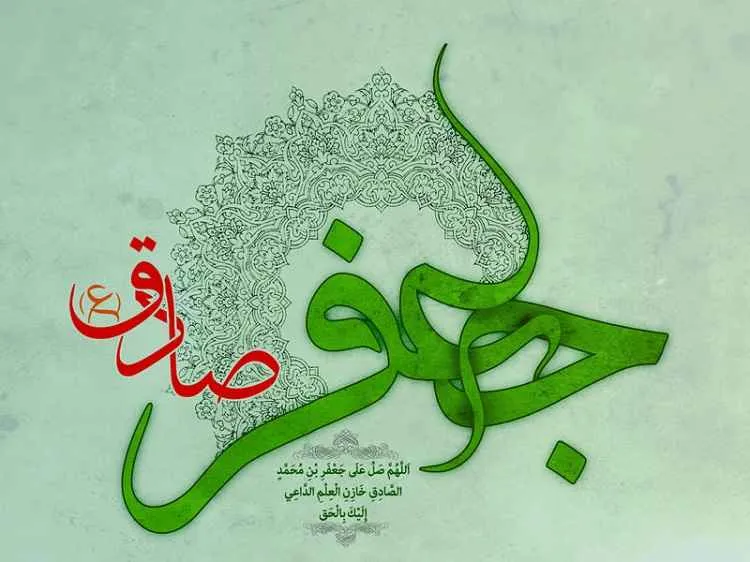 جعفر
صادق
(ع)
اَللّهُمَّ صَلِّ عَلی جَعْفَرِ بْنِ مُحَمَّدٍ
الصّادِقِ خازِنِ الْعِلْمِ الدَّاعِي
إِلَيْكَ بِالْحَقِّ